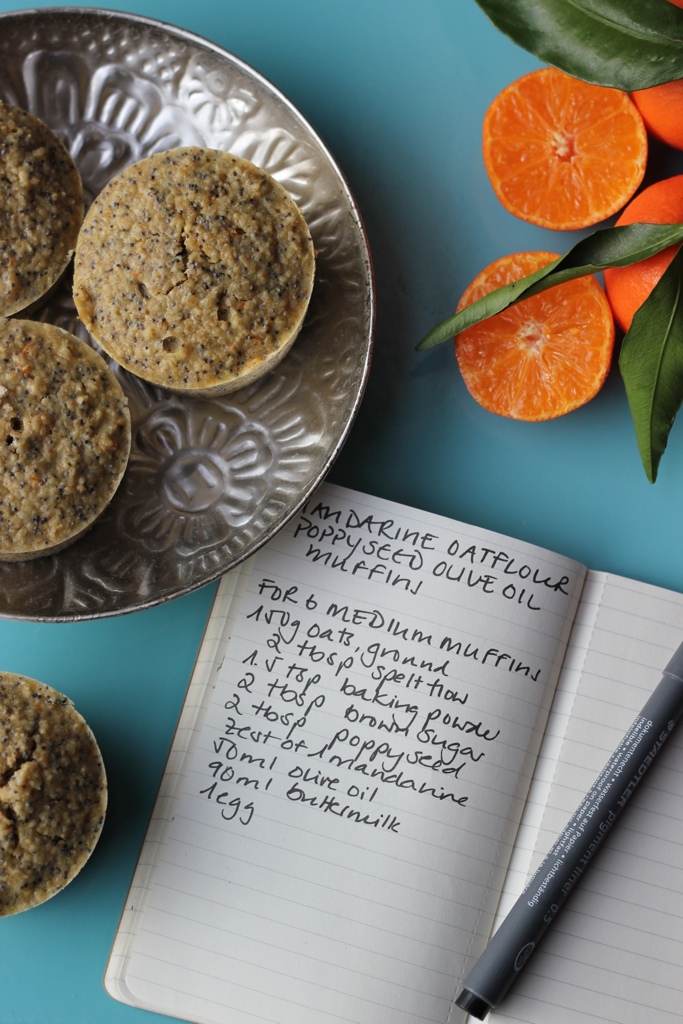 MANDARINE OATFLOUR
POPPYSEED OLIVE OIL
MUFFINS
FOR 6 MEDIUM MUFFINS
150g oats, ground
2 tbsp spelt flour
1.5 tsp baking powder
2 tbsp brown sugar
2 tbsp poppyseed
zest of 1 mandarine
50ml olive oil
90ml buttermilk
1 egg
STAEDTLER pigment liner 0.5
dokumentenecht • wasserfest auf Papier • lichtbeständig
indelible • waterproof on paper • lightfast